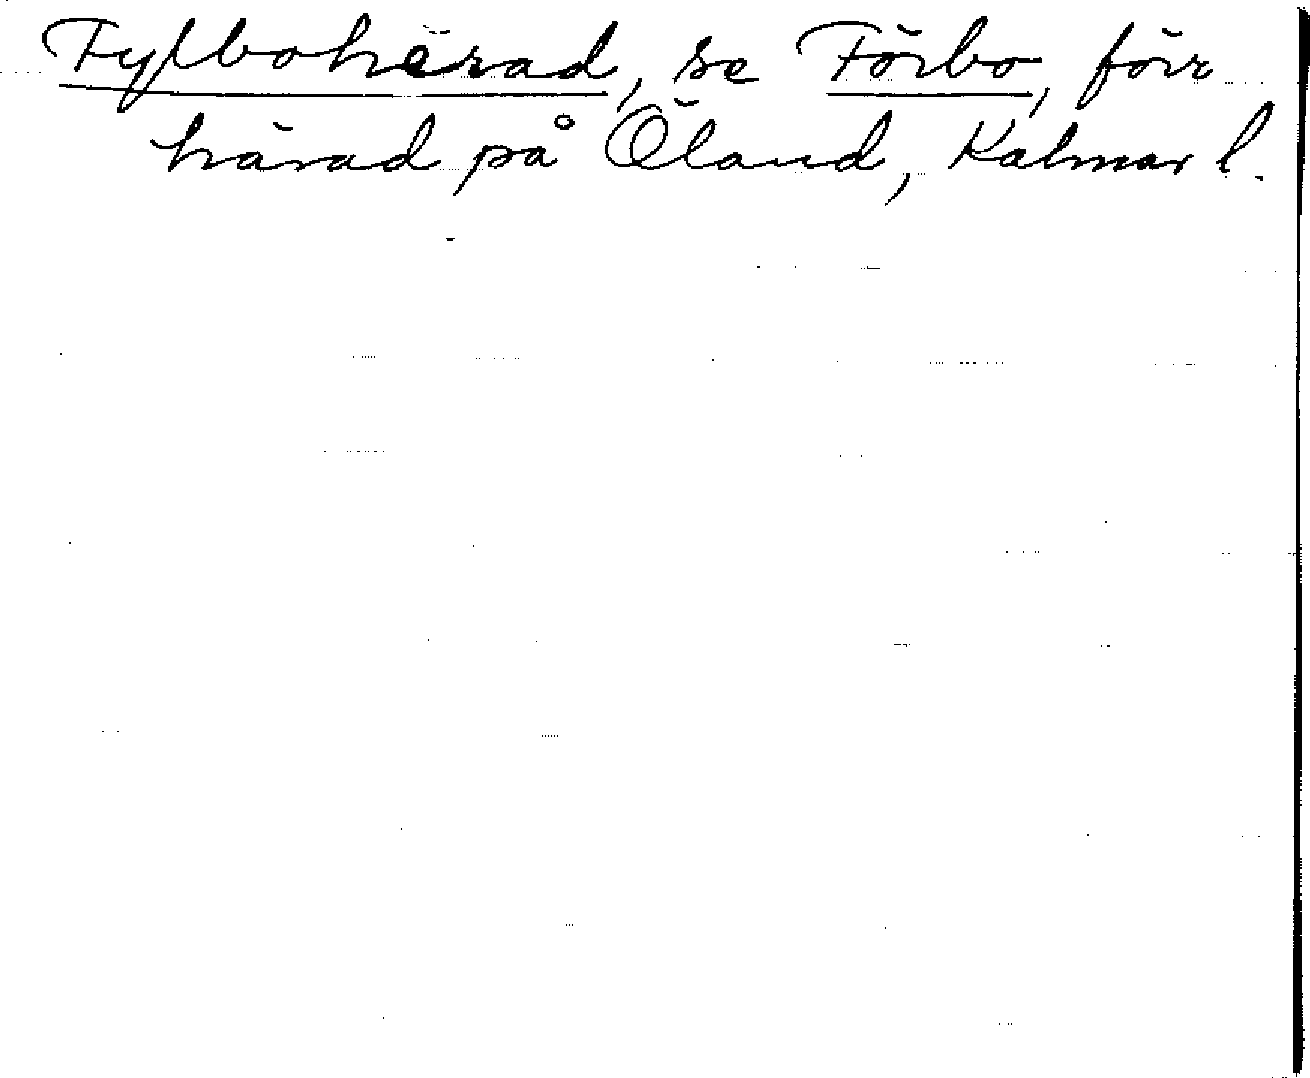 Fylboherad, se Förbo, förr
härad på Öland, Kalmar l.